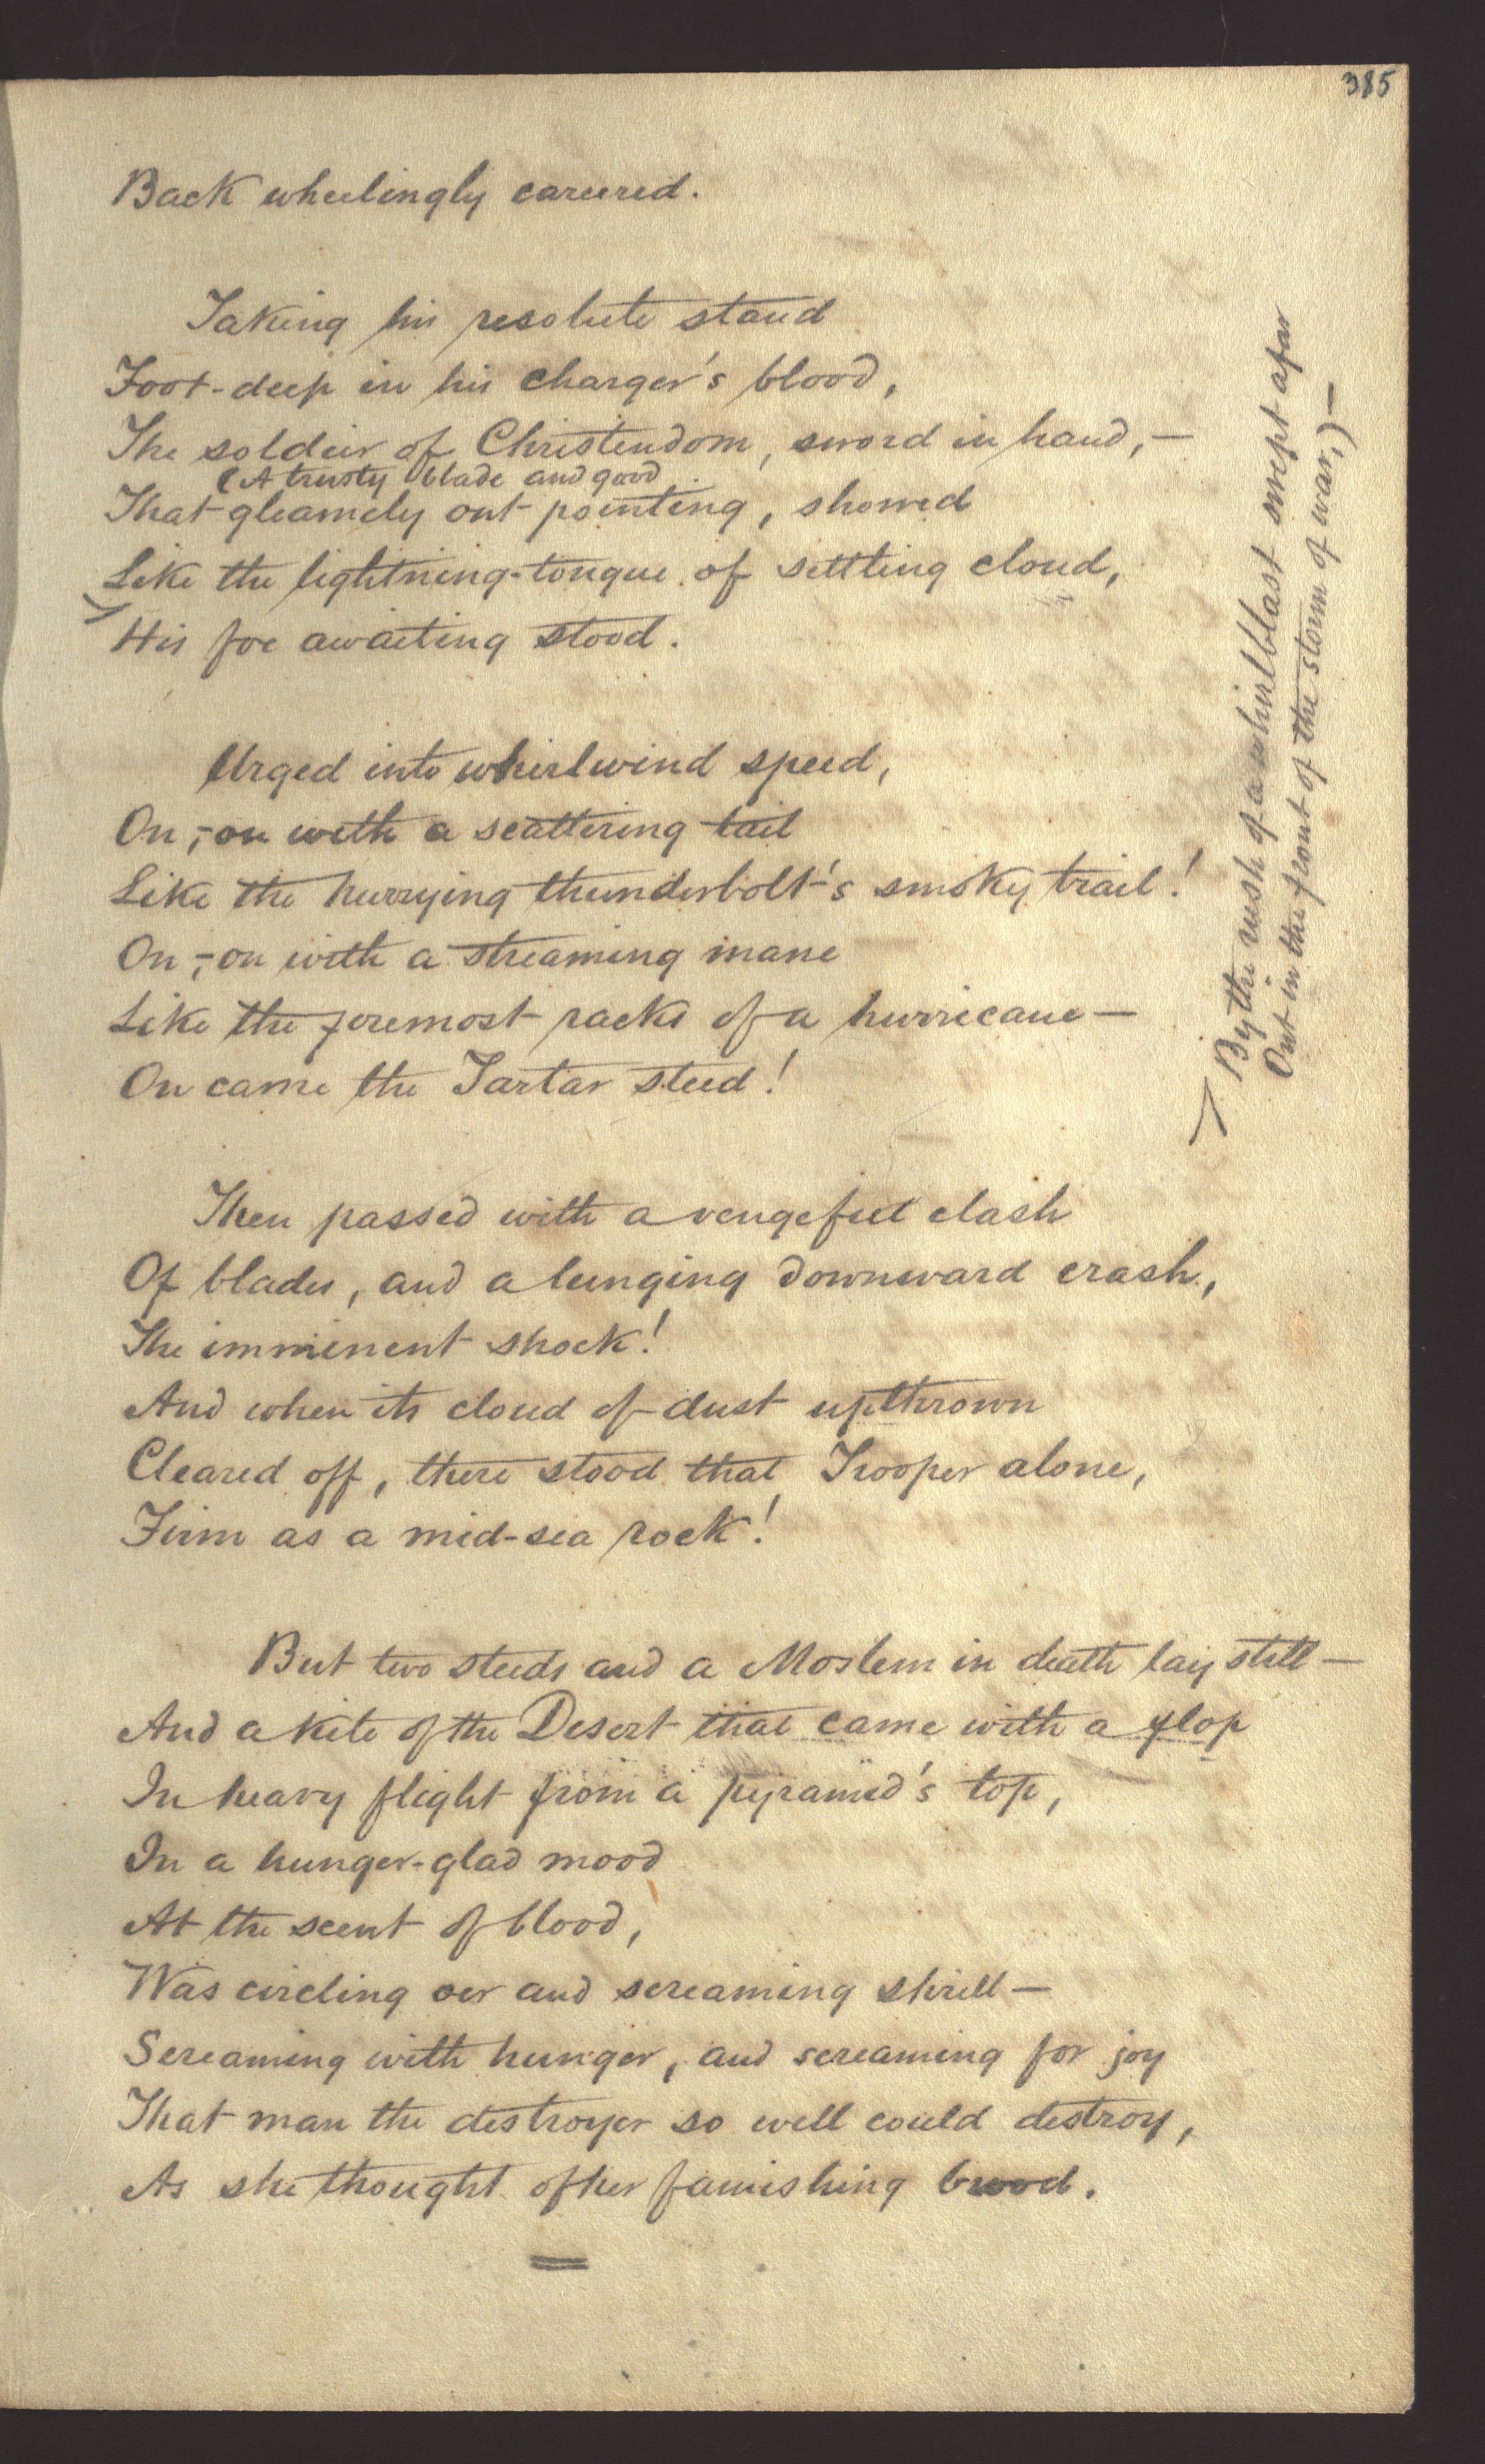 385
Back wheelingly careered.
Taking his resolute stand
Foot-deep in his charger's blood,
The soldier of Christendom, sword in hand,—
(A trusty blade and good
That gleamely out pointing, showed
Like the lightning-tongue of settling cloud,
His foe awaiting stood.
Urged into whirlwind speed,
On,—on with a scattering tail
Like the hurrying thunderbolt's smoky trail!
On,—on with a streaming mane
Like the foremost racks of a hurricane—
On came the Tartar steed!
Then passed with a vengeful clash
Of blades, and a lunging downward crash,
The imminent shock!
And when its cloud of dust upthrown
Cleared off, there stood that Trooper alone,
Firm as a mid-sea rock!
But two steeds and a Moslem in death lay still—
And a kite of the Desert that came with a flop
In heavy flight from a pyramid's top,
In a hunger-glad mood
At the scent of blood,
Was circling oer and screaming shrill—
Screaming with hunger, and screaming for joy
That man the destroyer so well could destroy,
As she thought of her famishing brood.
By the rush of a whirlblast swept afar
Out in the front of the storm of war,)—